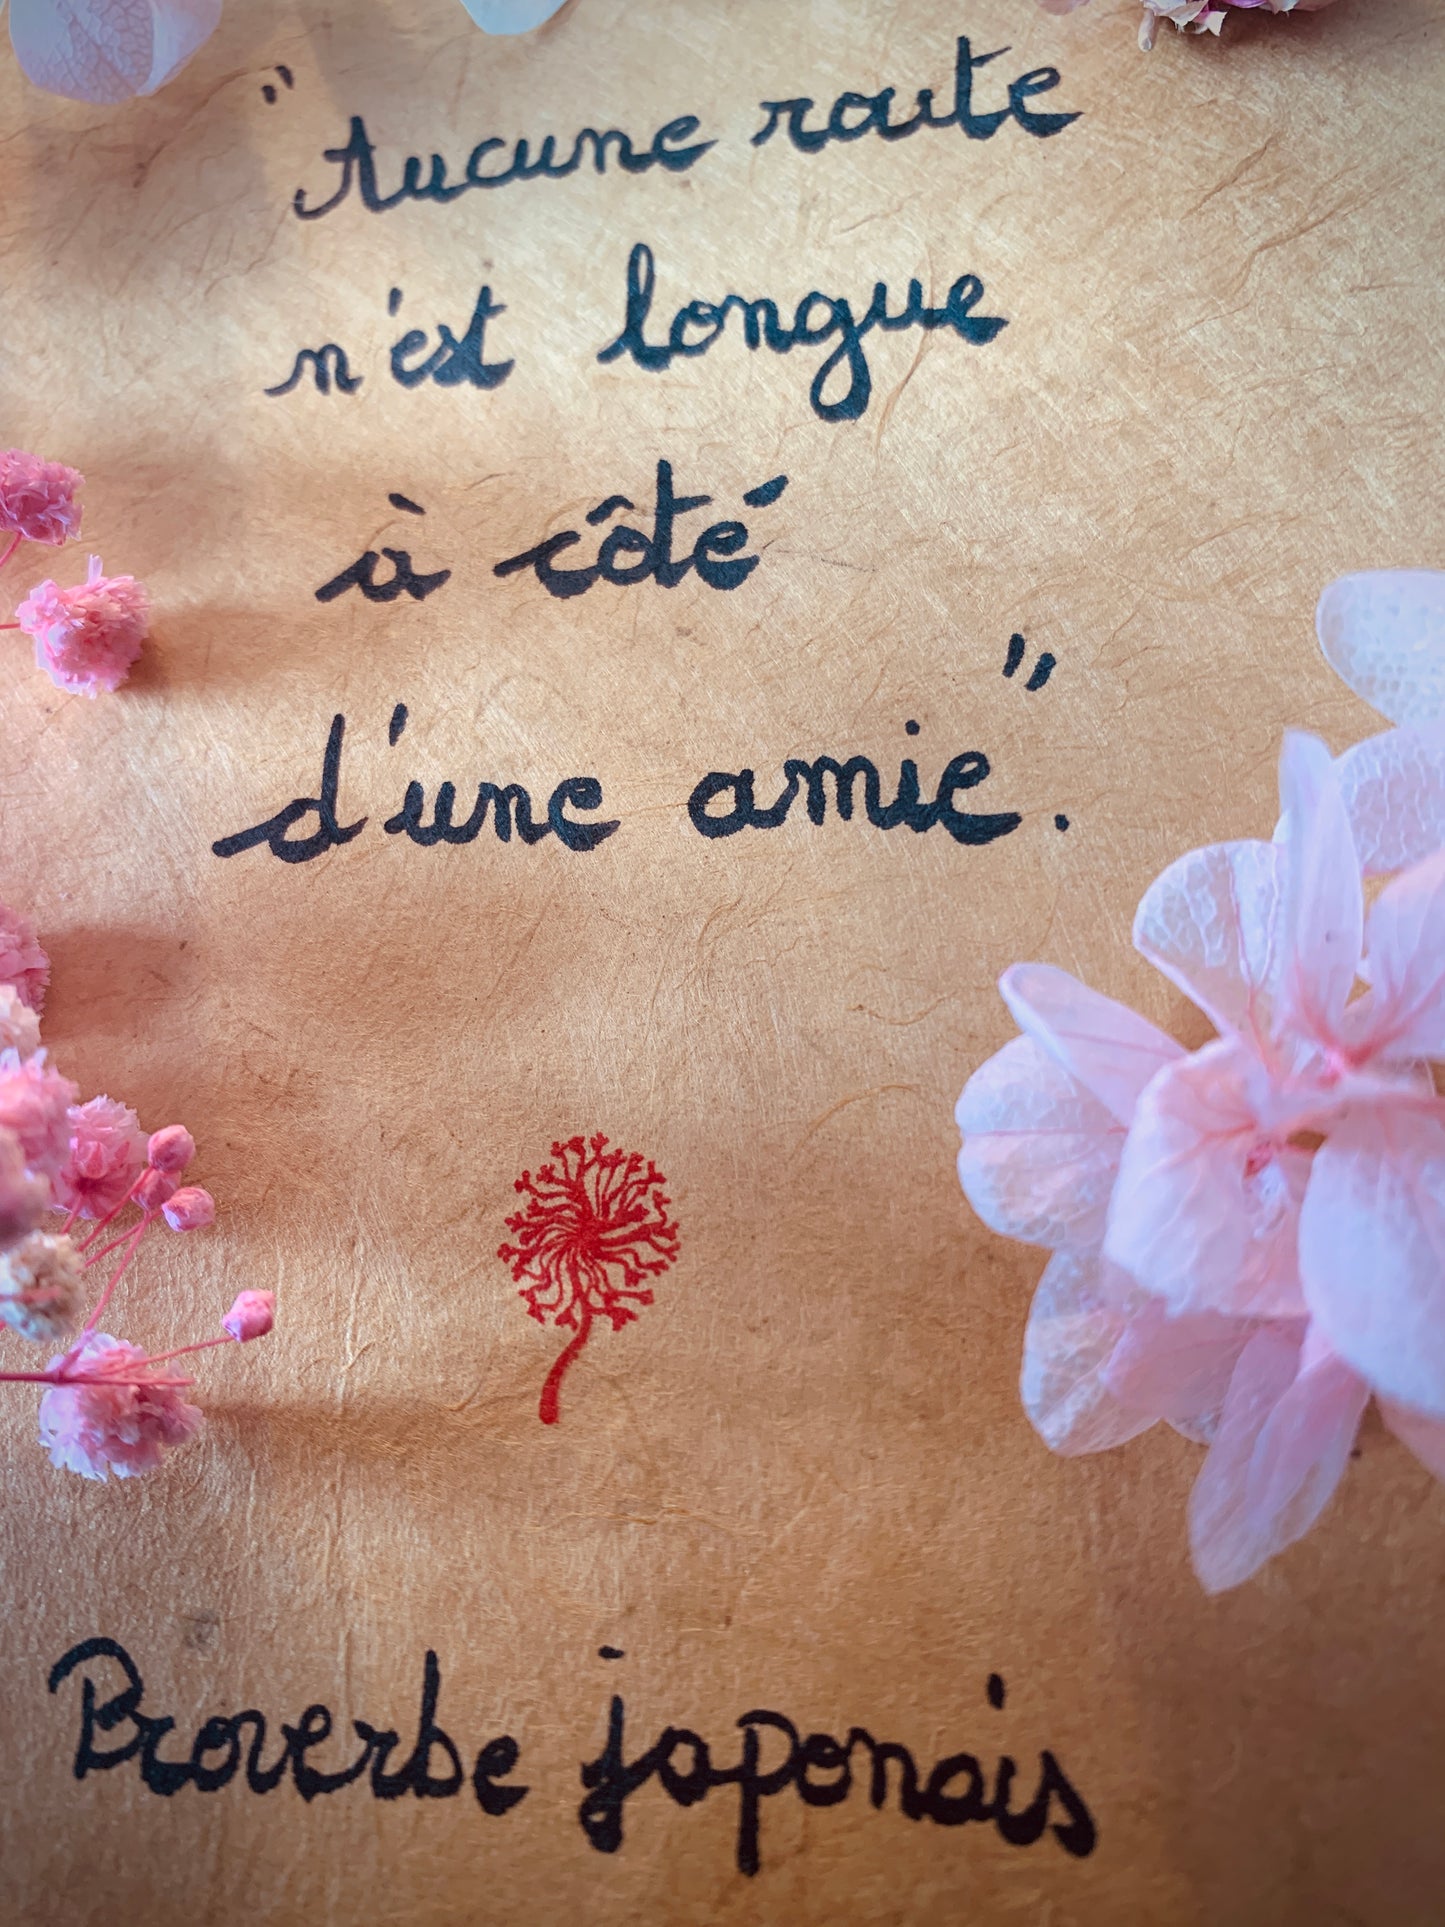 "Aucune route
n'est longue
à côté
d'une amie".
Proverbe japonais